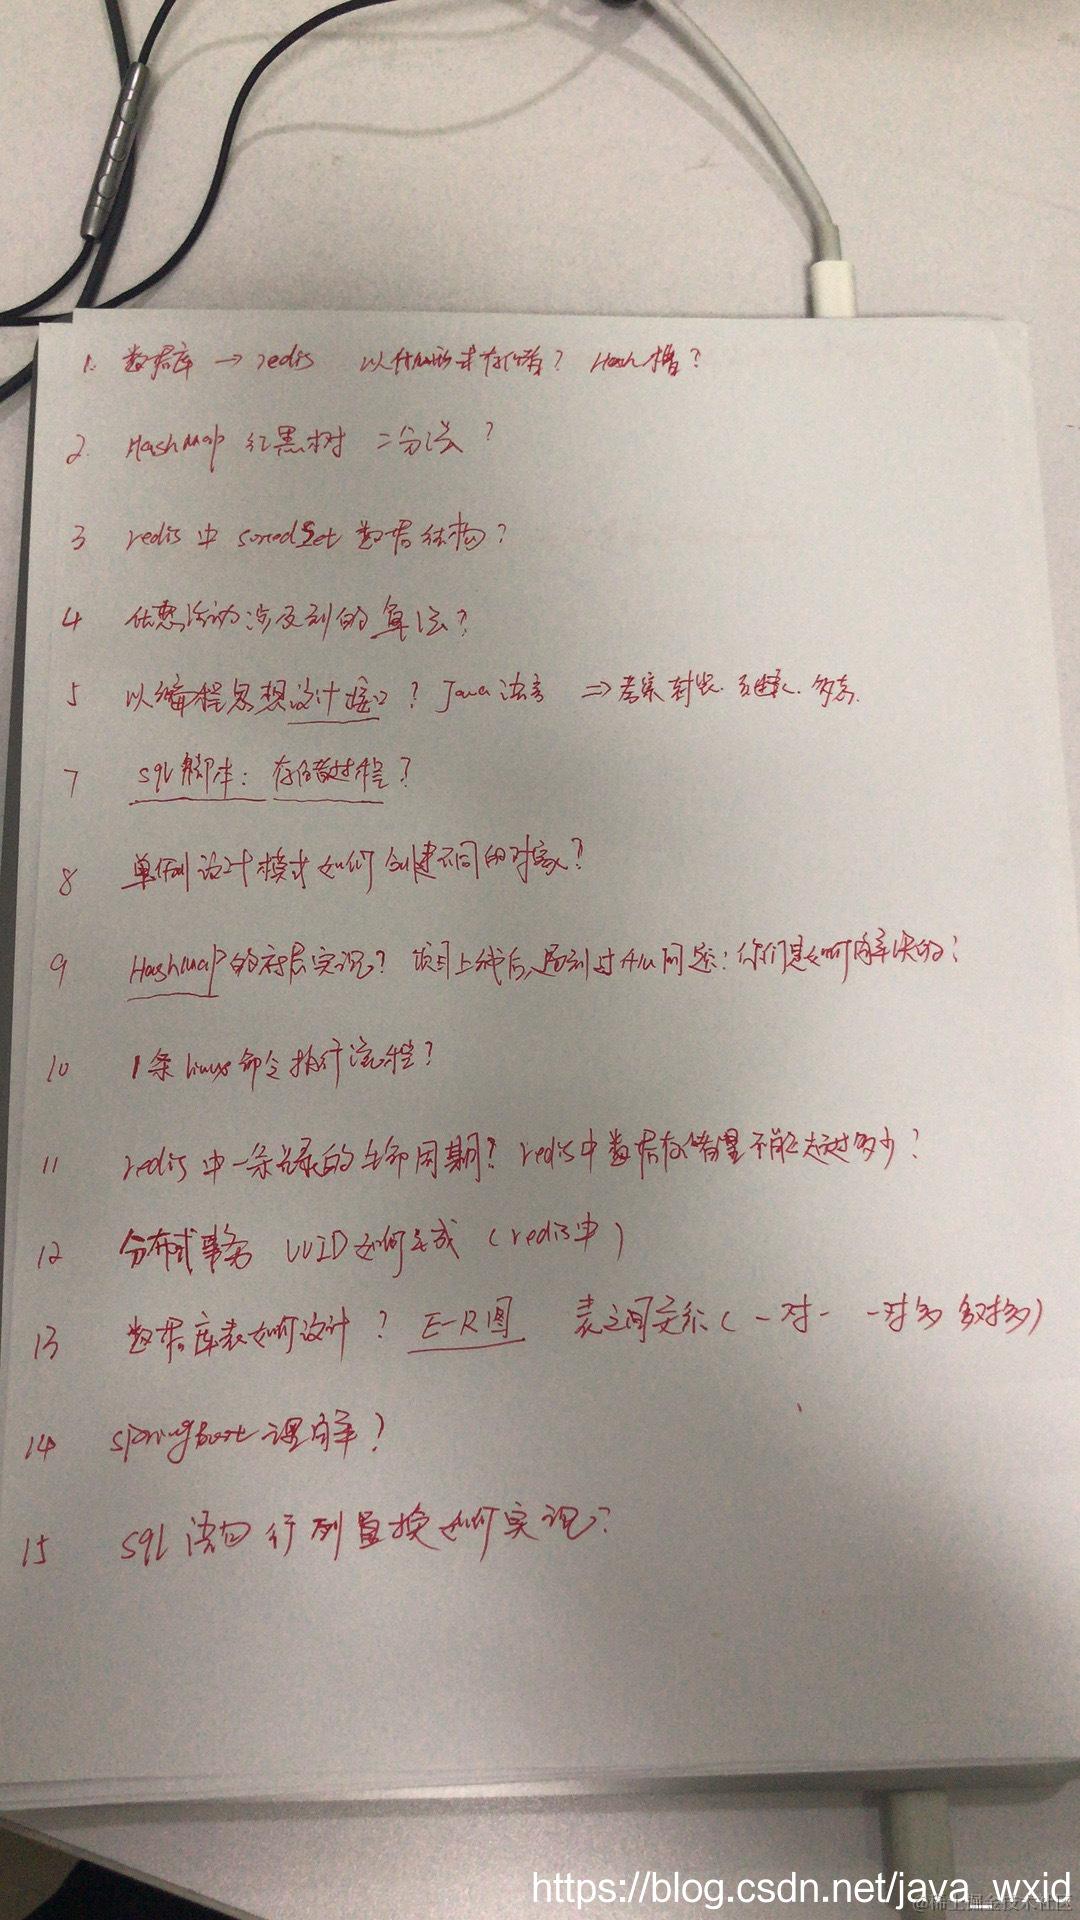 1. 数据库 → redis 以什么形式存储? Hash槽?
2. HashMap 红黑树 二分法?
3 redis 中 soredSet 数据结构?
4 优惠活动涉及到的算法?
5 以编程思想设计接口? Java语言 => 考察封装. 多态.
7 sql 脚本: 存储过程?
8 单例设计模式如何创建不同的对象?
9 HashMap的底层实现? 项目上线后,遇到过 问题: 你们是如何解决的?
10 1条 linux命令执行流程?
11 redis 中一条记录的生命周期? redis中数据存储量不能超过多少?
12 分布式事务 UUID如何生成 (redis中)
13 数据库表如何设计? E-R图 表之间关系 (一对一 一对多 多对多)
14 springBoot 理解?
15 sql 语句 行列置换如何实现?
https://blog.csdn.net/java_wxid
@稀土掘金技术社区